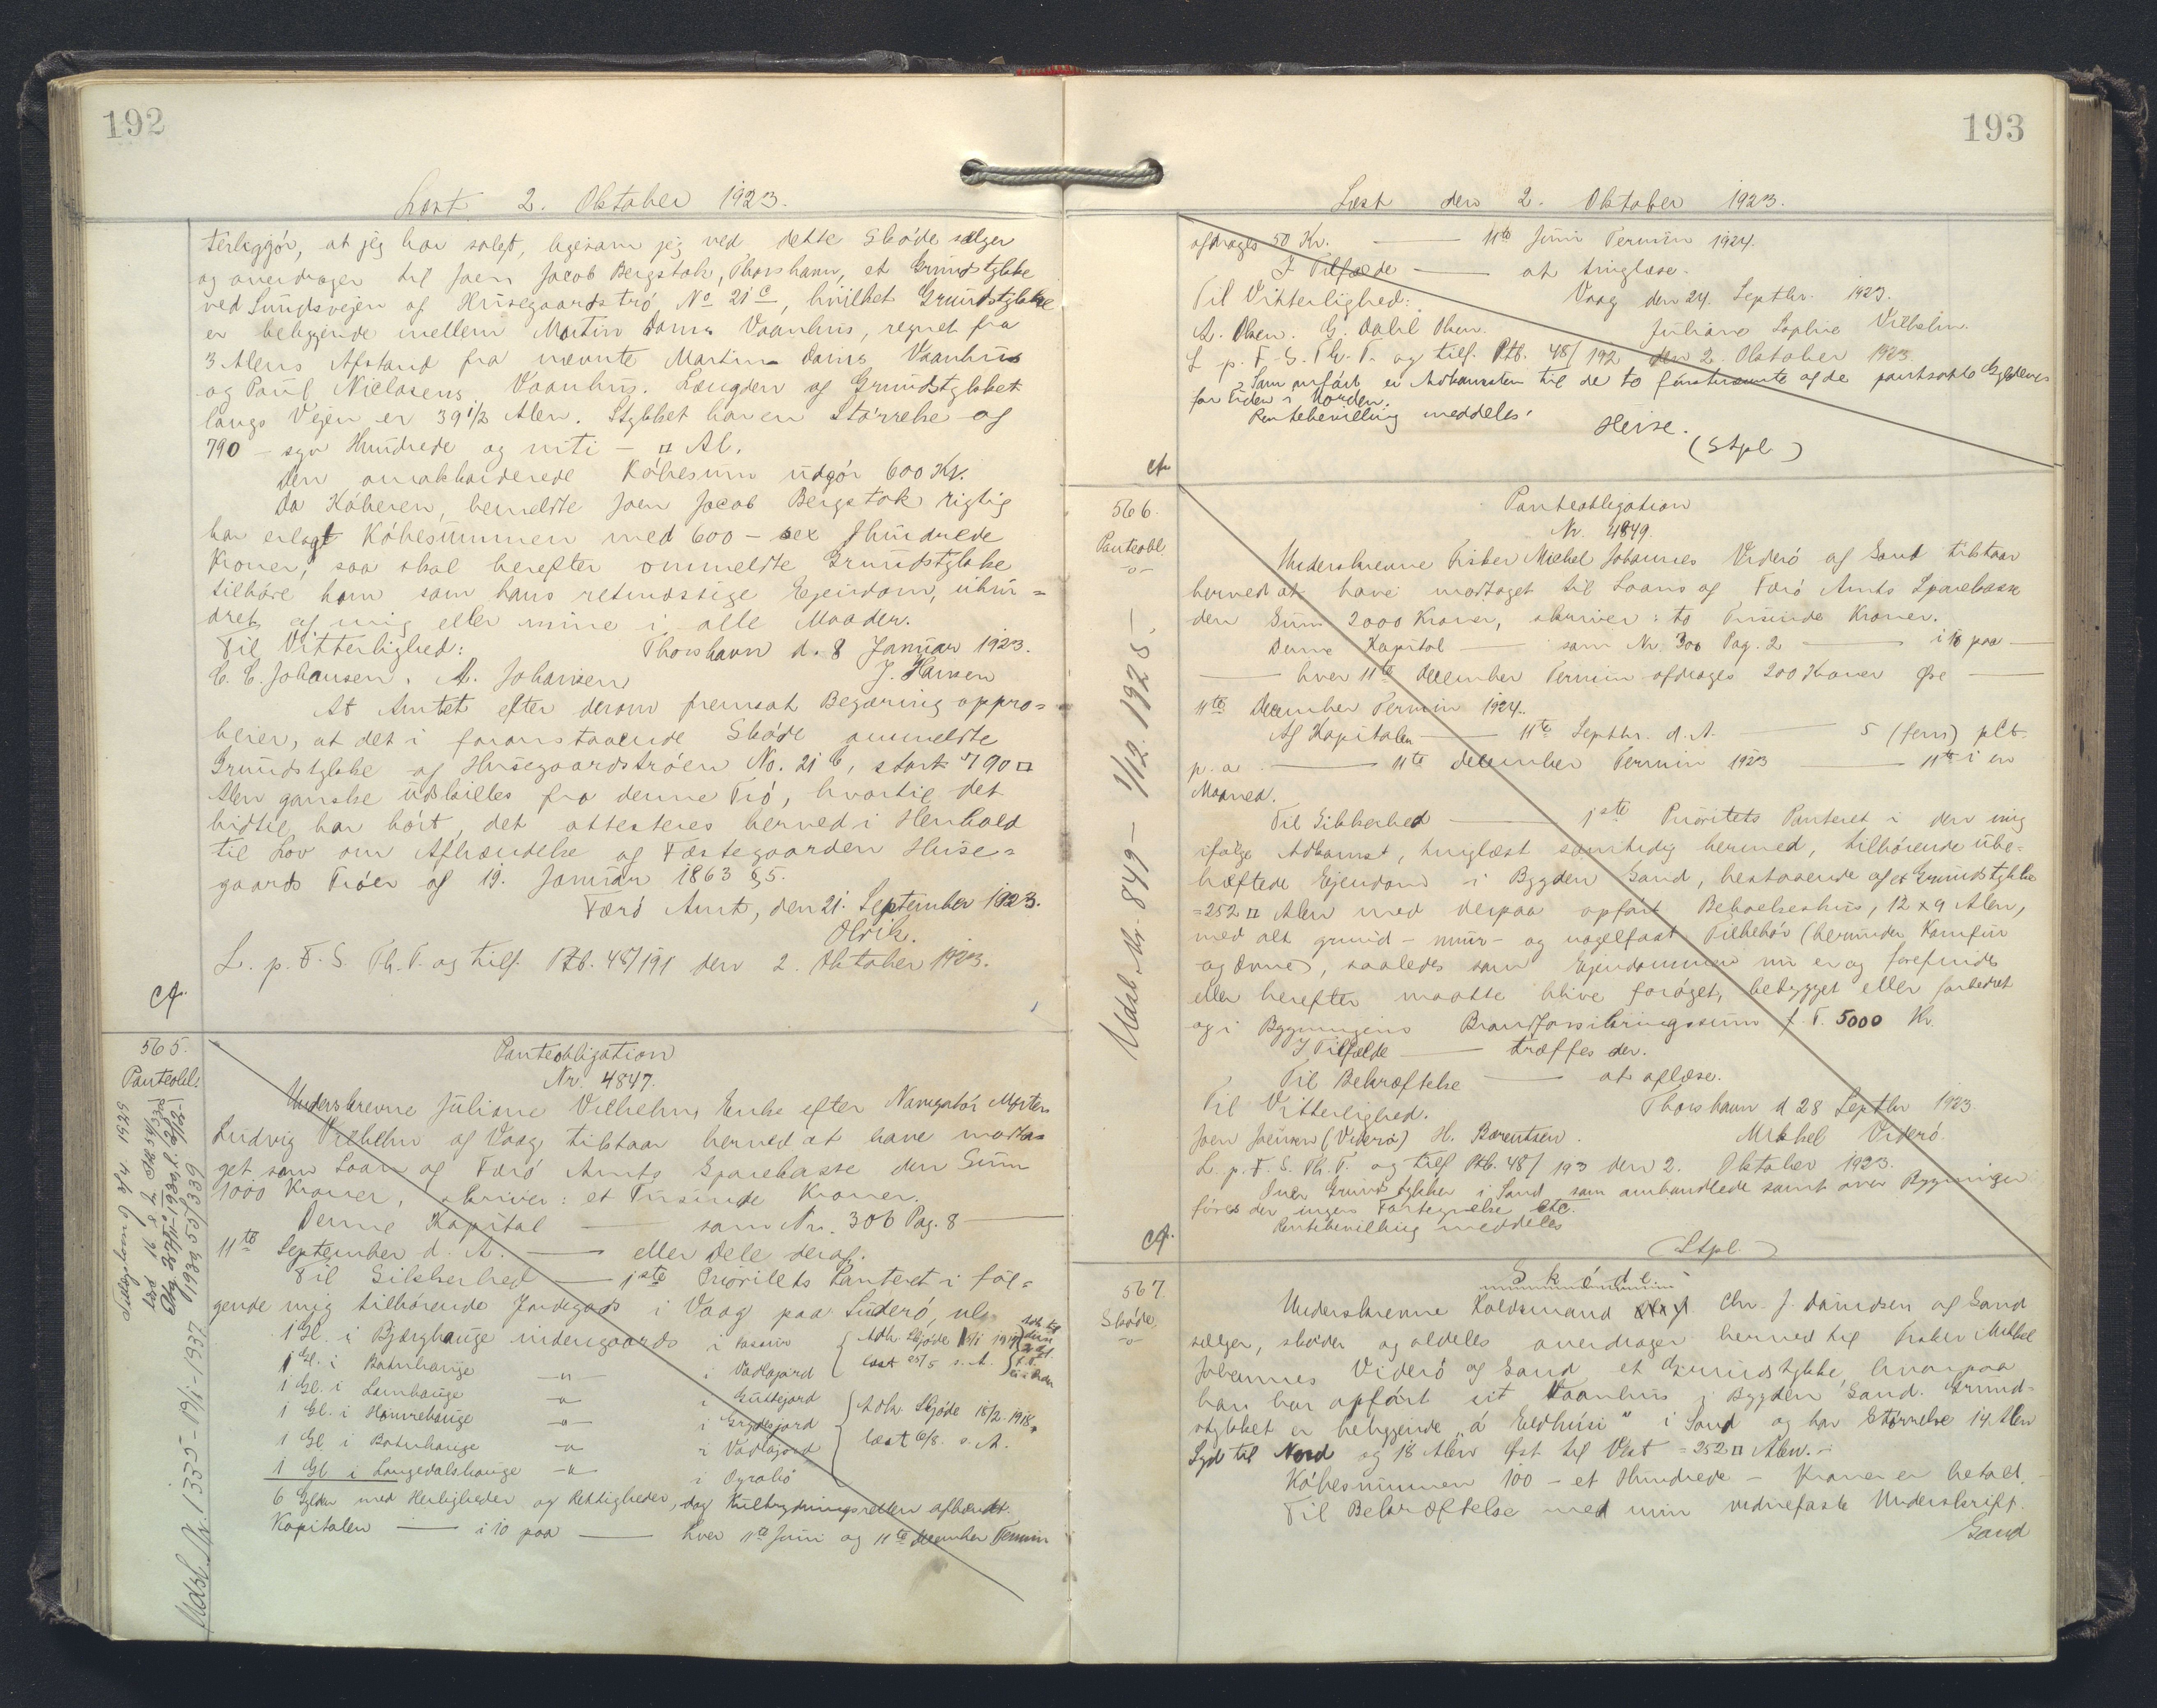 192
Læst 2. Oktober 1923.
terliggör, at jeg har solgt, ligesom jeg ved dette Skøde sælger
og overdrager til Joen Jacob Bergstok, Thorshavn, et Grundstykke
ved Sundsvejen af Husegaardstrø No 21 c, hvilket Grundstykke
er beliggende mellem Martin Dams Vaanhus, regnet fra
3 Alens Afstand fra nævnte Martin Dams Vaanhus
og Paul Nielasens Vaanhus. Længden af Grundstykket
langs Vejen er 39 1/2 Alen. Stykket har en Størrelse af
790 - syv Hundrede og niti - □ Al.
Den omakkorderede Købesum udgör 600 Kr.
Da Køberen, bemeldte Joen Jacob Bergstok rigtig
har erlagt Købesummen med 600 - sex Hundrede
Kroner, saa skal herefter ommeldte Grundstykke
tilhøre ham som hans retmæssige Ejendom, uhin=
dret af mig eller mine i alle Maader.
Til Vitterlighed: Thorshavn d. 8 Januar 1923.
C. C. Johansen. A. Johansen J. Hansen
At Amtet efter derom fremsat Begæring appro=
berer, at det i foranstaaende Skøde ommeldte
Grundstykke af Husegaardstrøen No. 21 c, stort 790 □
Alen ganske udskilles fra denne Trø, hvortil det
hidtil har hørt, det attesteres herved i Henhold
til Lov om Afhændelse af Fæstegaarden Huse=
gaards Trøer af 19. Januar 1863 § 5.
Færø Amt, den 21. September 1923.
Olrik.
L. p. F. S. Th. T. og tilf. Ptb. 48/191 den 2. Oktober 1923.
Cf.
565.
Panteobl.
Panteobligation
Nr. 4847.
Underskrevne Juliane Vilhelm, Enke efter Navigatör Morten
Ludvig Vilhelm af Vaag tilstaar herved at have modta=
get som Laan af Færø Amts Sparekasse den Sum
1000 Kroner, skriver: et Tusinde Kroner.
Denne Kapital —— som Nr. 306 Pag. 8 ——
11te September d. A. —— eller dele deraf.
Til Sikkerhed —— 1ste Prioritets Panteret i föl=
gende mig tilhørende Jordegods i Vaag paa Suderø, nl.
1 Gl. i Bjærghauge nidengaards i
1 Gl. i Botnhauge -"- i Vadlagard
1 Gl. i Lamhauge -"- i
1 Gl. i Hamrehauge -"- i
1 Gl. i Botnhauge -"- i Vadlagard
1 Gl. i Langedalshauge -"- i Ogrolid
Adk. Skjøde 1917
læst 25/5 s. A.
Adk. Skjøde 18/2 1918
læst 6/8. s. A.
6 Gylden med Herligheder og Rettigheder, dog Kulbrydningsretten afhændt.
Kapitalen —— i 10 paa —— hver 11te Juni og 11te December Termin
Udsl. Nr. 1355 - 19/1 - 1937
193
Læst den 2. Oktober 1923.
afdrages 50 Kr. —— 11te Juni Termin 1924.
I Tilfælde —— at tinglæse.
Til Vitterlighed: Vaag den 24. Septbr. 1923.
A. Olsen. G. Dahl Olsen. Juliane Sophie Vilhelm.
L. p. F. S. Th. T. og tilf. Ptb. 48/192 den 2. Oktober 1923.
Som anført er Adkomsten til de to førstnævnte af de pantsatte Gyldener
for Tiden i Orden.
Pantebevilling meddeles.
Heise.
(Stpl)
Cf.
566.
Panteobl.
Panteobligation
Nr. 4849.
Underskrevne Fisker Mikkel Johannes Viderø af Sand tilstaar
herved at have modtaget til Laans af Færø Amts Sparekasse
den Sum 2000 Kroner, skriver: to Tusinde Kroner.
Denne Kapital —— som Nr. 300 Pag. 2 —— i 10 paa ——
—— hver 11te December Termin afdrages 200 Kroner Øre ——
11te December Termin 1924.
Af Kapitalen —— 11te Septbr. d. A. —— 5 (fem) pCt.
p. a. —— 11te December Termin 1923 —— 11te i en
Maaned.
Til Sikkerhed —— 1ste Prioritets Panteret i den mig
ifølge Adkomst, tinglæst samtidig hermed, tilhørende ube=
hæftede Ejendom i Bygden Sand, bestaaende af et Grundstykke
=252 □ Alen med derpaa opført Beboelseshus, 12 x 9 Alen,
med alt grund- mur- og nagelfast Tilbehør (herunder Komfur
og Ovne), saaledes som Ejendommen nu er og forefindes
eller herefter maatte blive forøget, bebygget eller forbedret
og i Bygningens Brandforsikringssum f. T. 5000 Kr.
I Tilfælde —— træffes der.
Til Bekræftelse —— at aflæse.
Til Vitterlighed. Thorshavn d 28 Septbr 1923.
Joen Joensen (Viderø) H. Bærentsen. Mikkel Viderø.
L. p. F. S. Th. T. og tilf Ptb. 48/193 den 2. Oktober 1923.
Over Grundstykker i Sand som ombandlede samt over Bygninger
føres der ingen Fortegnelse etc.
Pantebevilling meddeles
(Stpl.)
Cf.
Udsl. Nr. 849 - 1/12. 1925 -
567.
Skøde
Skøde.
Underskrevne Kaldsmand Chr. J. Davidsen af Sand
sælger, skøder og aldeles overdrager herved til Fisker Mikkel
Johannes Viderø af Sand et Grundstykke, hvorpaa
han har opført sit Vaanhus i Bygden Sand. Grund-
stykket er beliggende "á Eldhúsi" i Sand og har Størrelse 14 Alen
Syd til Nord og 18 Alen Øst til Vest = 252 □ Alen. -
Købesummen 100 - et Hundrede - Kroner er betalt. -
Til Bekræftelse med min vidnefaste Underskrift.
Sand